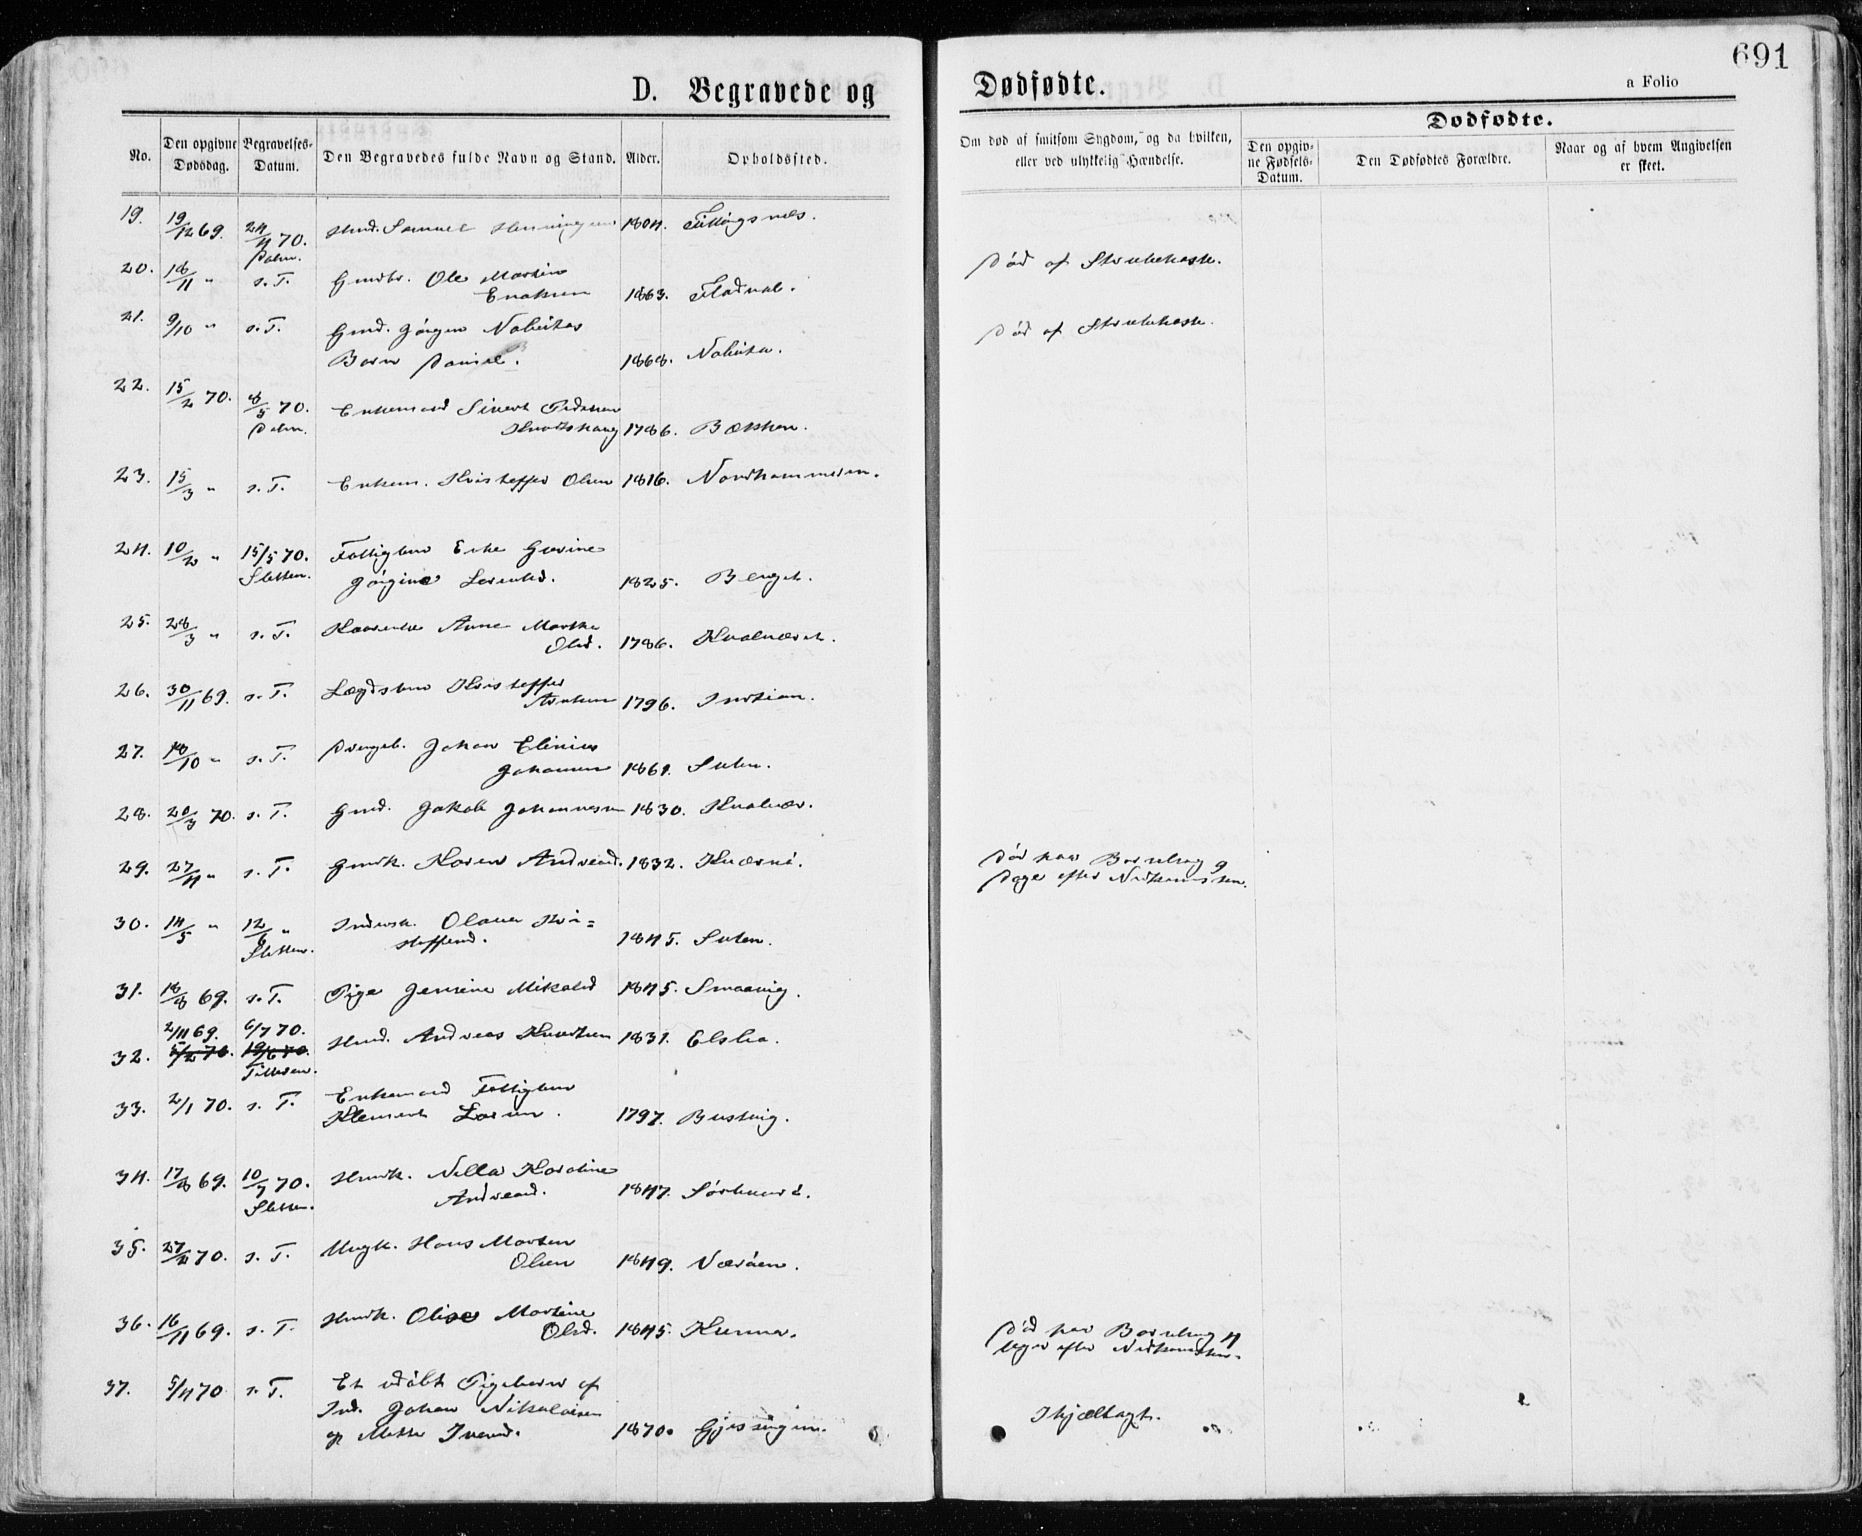 691
D. Begravede og
Dødfødte.
a Folio
No.
Den opgivne Dødsdag.
Begravelses-Datum.
Den Begravedes fulde Navn og Stand.
Alder.
Opholdssted.
Om død af smitsom Sygdom, og da hvilken,
eller ved ulykkelig Hændelse.
Dødfødte.
Den opgiv-
ne Fødsels-
Datum.
Den Dødfødtes Forældre.
Naar og af hvem Angivelsen
er skeet.
19. 19/12 69. 24/4 70. Samuel 1804.
20. 18/11 " s. T. Ole Martin 1863. Fladval.
Død af Strubehoste.
21. 9/10 " s. T. Gmd. Jørgen
Barn Daniel. 1868.
Død af Strubehoste.
22. 15/2 70. 8/5 70. Enkemand Sivert Pedersen
1786. Bækken.
23. 15/3 " s. T. Enkem. Kristoffer Olsen 1816. Nordhammeren.
24. 10/2 " 15/5 70. Fattiglem Enke Gurine
Sletten. Jørgine Larsd. 1825. Berget.
25. 28/3 " s. T. Anne Marthe
Olsd. 1786. Kvalnæset.
26. 30/11 69. s. T. Lægdslem Kristoffer
1796. Indtian.
27. 18/10 " s. T. Drengeb. Johan
Johansen 1861.
28. 20/3 70. s. T. Gmd. Jakob Johannesen 1830. Kvalnæs.
29. 27/4 " s. T. Gmdk. Karen Andreasd. 1832. Kværnø.
Død paa Barselseng 9
Dage efter Nedkomsten.
30. 14/5 " 12/6 " Inderstk. Olava Kri=
Sletten. stoffersd. 1845.
31. 18/8 69. s. T. Pige Jensine Mikalsd 1845. Smaavig.
2/11 69. 6/7 70.
32. 5/2 70. 19/6 70. Andreas Knudsen 1831. Elslia.
33. 2/1 70. s. T. Enkemand Fattiglem
Klement Larsen. 1797. Bustvig.
34. 17/8 69. 10/7 70. Hmdk. Nella Karoline
Sletten. Andreasd. 1847.
35. 27/2 70. s. T. Ungk. Hans Morten
Olsen 1849. Nærøen.
36. 16/11 69. s. T. Hmdk. Olise Martine
Olsd. 1845. Kvenna.
Død paa Barselseng 4
Uger efter Nedkomsten.
37. 5/4 70 s. T. Et udøbt Pigebarn af
Ind. Johan Nikolaisen
og Mette Iversd. 1870. Gjessingen.
Ihjællagt.